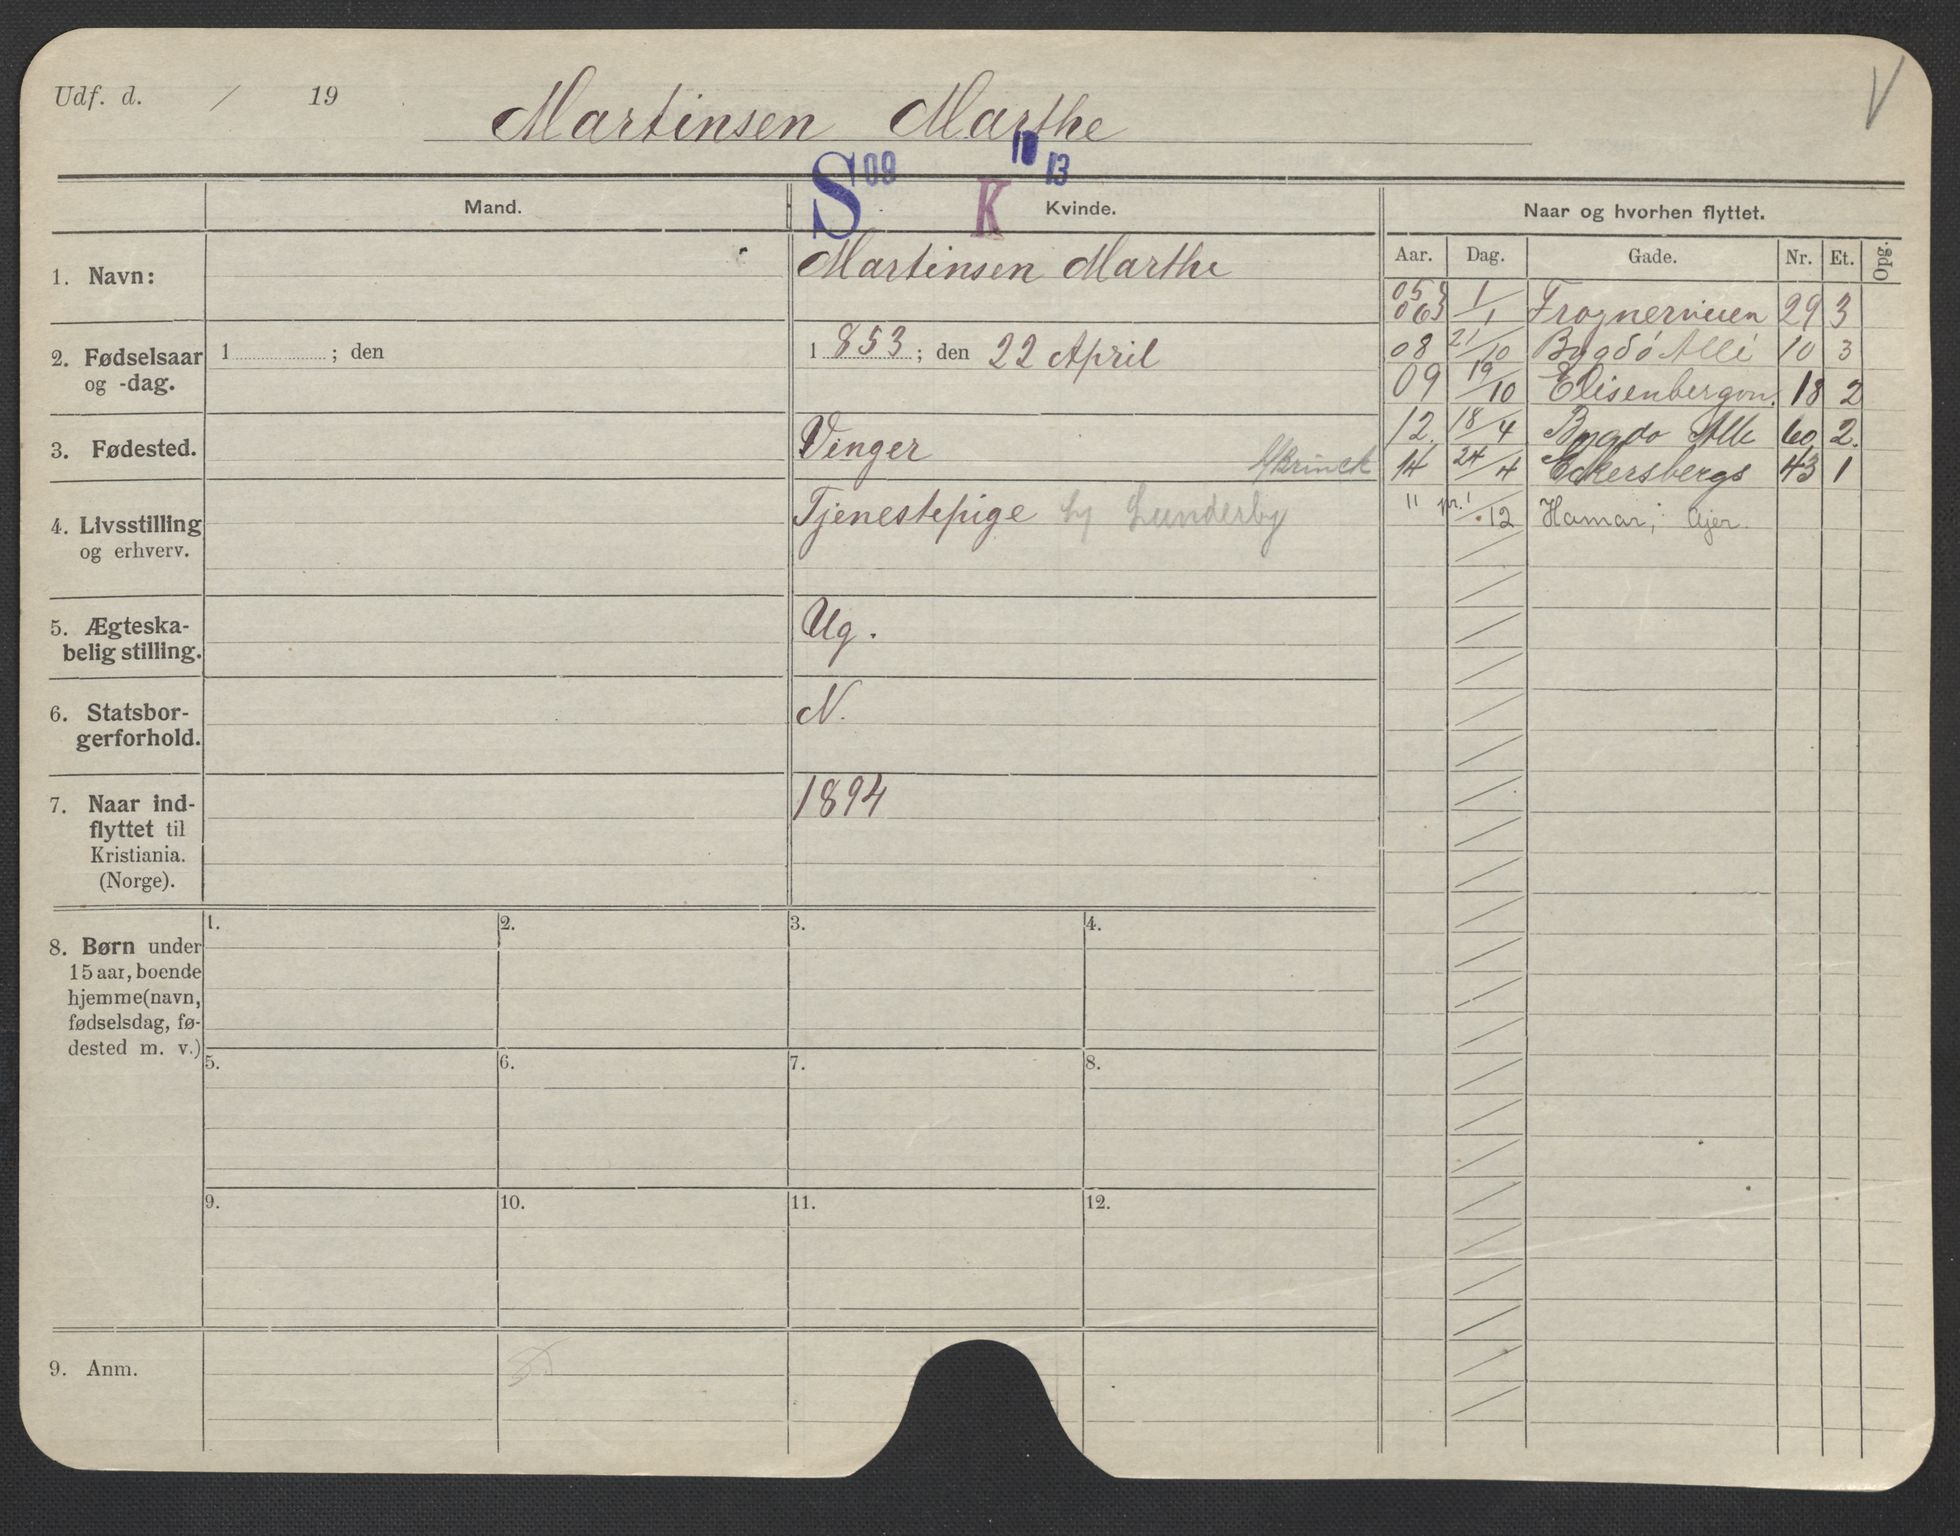 Udf. d. / 19
Martinsen Marthe
V
S 09 K 13
Mand. Kvinde. Naar og hvorhen flyttet.
Aar. Dag. Gade. Nr. Et. Opg.
1. Navn: Martinsen Marthe
2. Fødselsaar og -dag. 1 ; den
1 853 ; den 22 April
3. Fødested. Vinger
4. Livsstilling og erhverv. Tjenestepige
5. Ægteska-
belig stilling. Ug.
6. Statsbor-
gerforhold. N.
7. Naar ind-
flyttet til
Kristiania.
(Norge). 1894
05 06 1/1 Frognerveien 29 3
08 21/10 Bygdö Allé 10 3
09 19/10 Elisenbergvn. 18 2
12. 18/4 Bygdo Alle 60 2.
14 24/4 Eckersbergs 43 1
" pr. 1/12 Hamar;
8. Børn under
15 aar, boende
hjemme(navn,
fødselsdag, fø-
dested m. v.)
1. 2. 3. 4.
5. 6. 7. 8.
9. 10. 11. 12.
9. Anm.